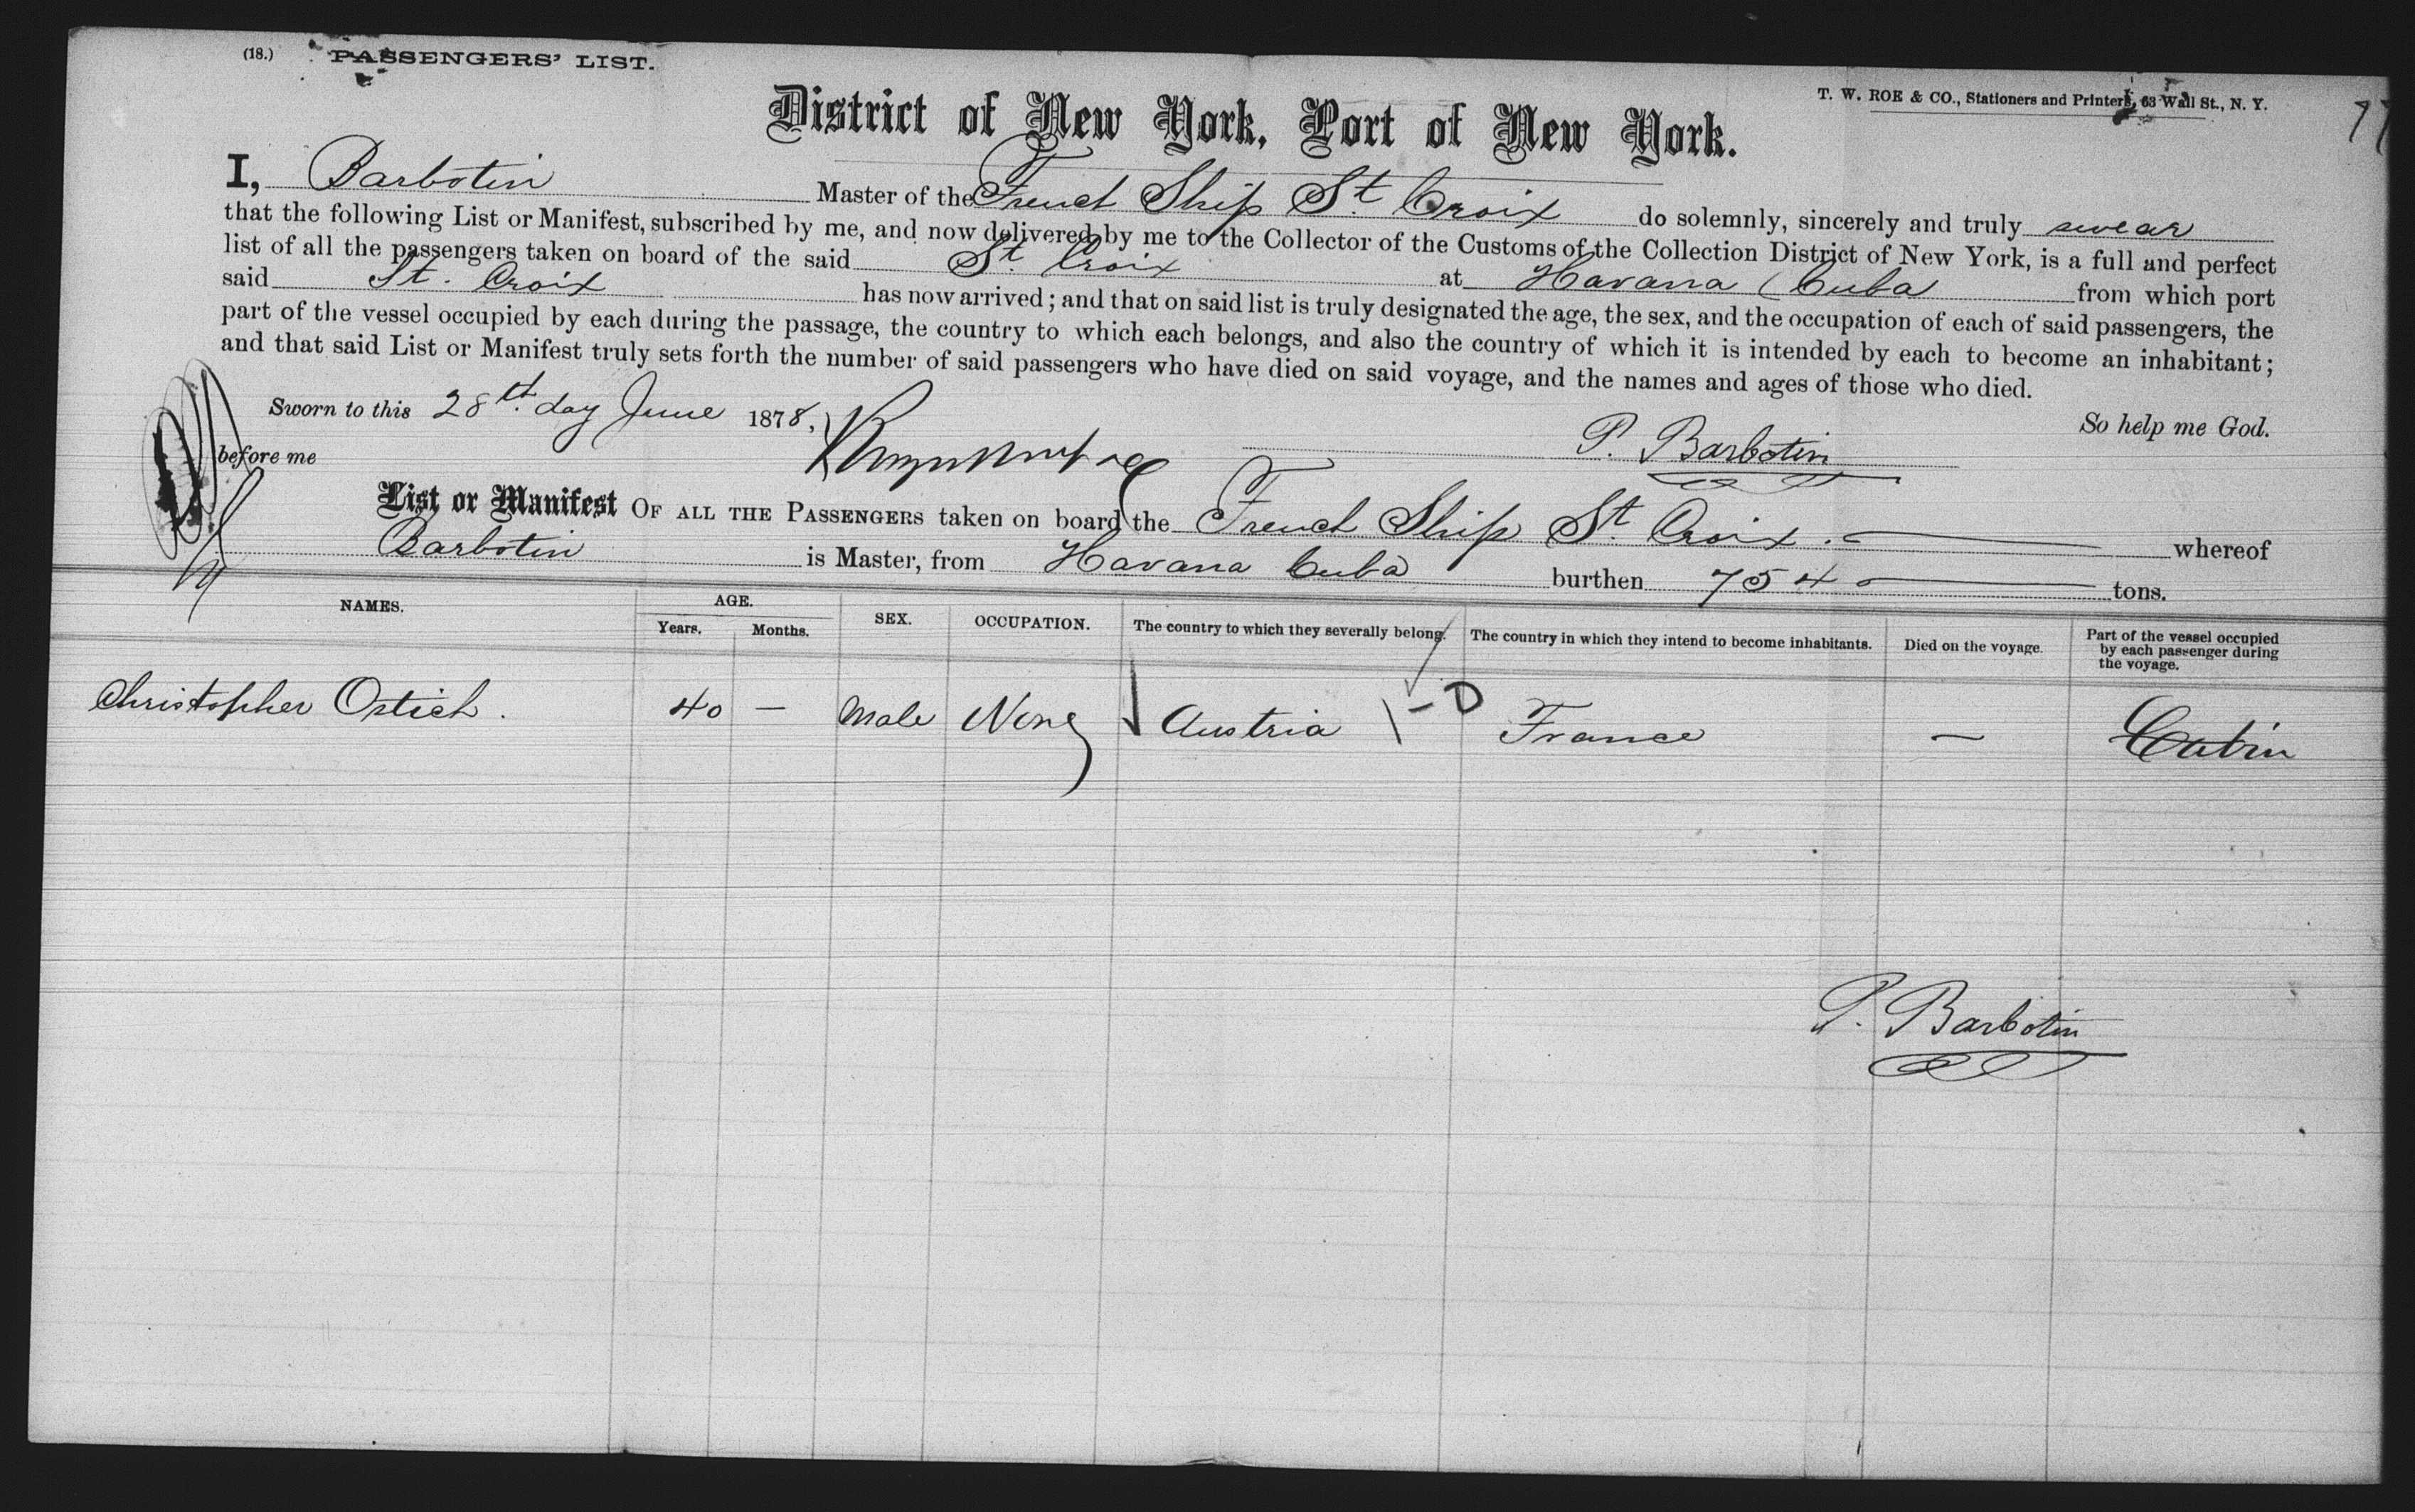 (18.) PASSENGERS' LIST.
T. W. ROE & CO., Stationers and Printers, 63 Wall St., N. Y.
District of New York, Port of New York.
I, Barbotin Master of the French Ship St. Croix do solemnly, sincerely and truly swear
that the following List or Manifest, subscribed by me, and now delivered by me to the Collector of the Customs of the Collection District of New York, is a full and perfect
list of all the passengers taken on board of the said St. Croix at Havana Cuba from which port
said St. Croix has now arrived; and that on said list is truly designated the age, the sex, and the occupation of each of said passengers, the
part of the vessel occupied by each during the passage, the country to which each belongs, and also the country of which it is intended by each to become an inhabitant;
and that said List or Manifest truly sets forth the number of said passengers who have died on said voyage, and the names and ages of those who died.
Sworn to this 28th. day June 1878, So help me God.
before me P. Barbotin
List or Manifest OF ALL THE PASSENGERS taken on board the French Ship St. Croix. whereof
Barbotin is Master, from Havana Cuba burthen 754 tons.
NAMES. AGE. Years. Months. SEX. OCCUPATION. The country to which they severally belong. The country in which they intend to become inhabitants. Died on the voyage. Part of the vessel occupied by each passenger during the voyage.
Christopher Ostich. 40 — Male None Austria 1-D France — Cabin
P. Barbotin